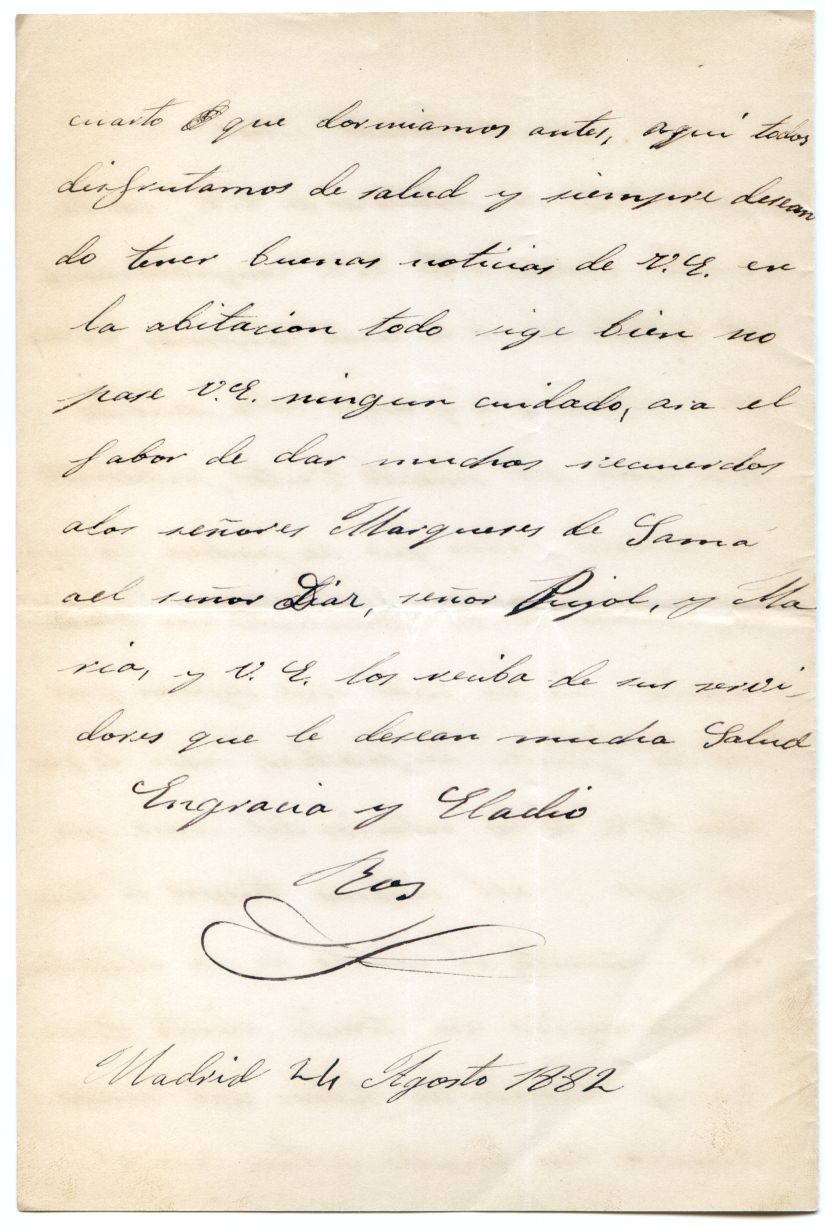 cuarto que dormiamos antes, aquí todos
disfrutamos de salud y siempre desean
do tener buenas noticias de V.E. en
la abitacion todo sige bien no
pase V.E. ningun cuidado, ara el
fabor de dar muchos recuerdos
alos señores Marqueses de Samá
ael señor Diaz, señor Pujol, y Ma
ria, y V.E. los reciba de sus servi-
dores que le desean mucha Salud
Engracia y Eladio
Ros
Madrid 24 Agosto 1882